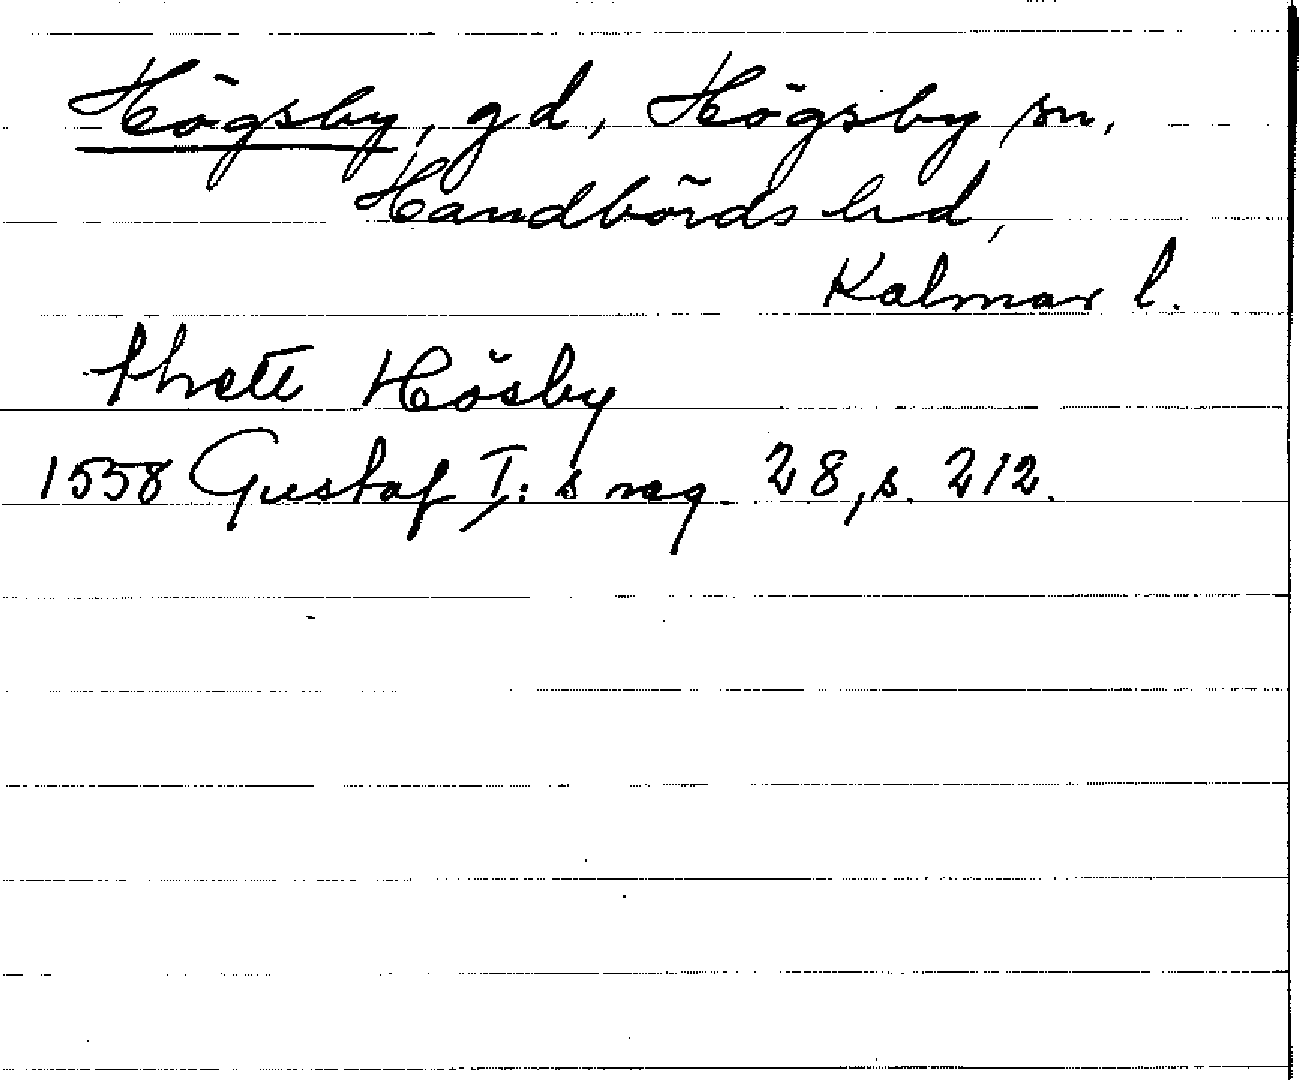 Högsby, gd, Högsby sn,
Handbörds hd,
Kalmar l.
Hösby
1558 Gustaf I:s reg. 28, s. 212.